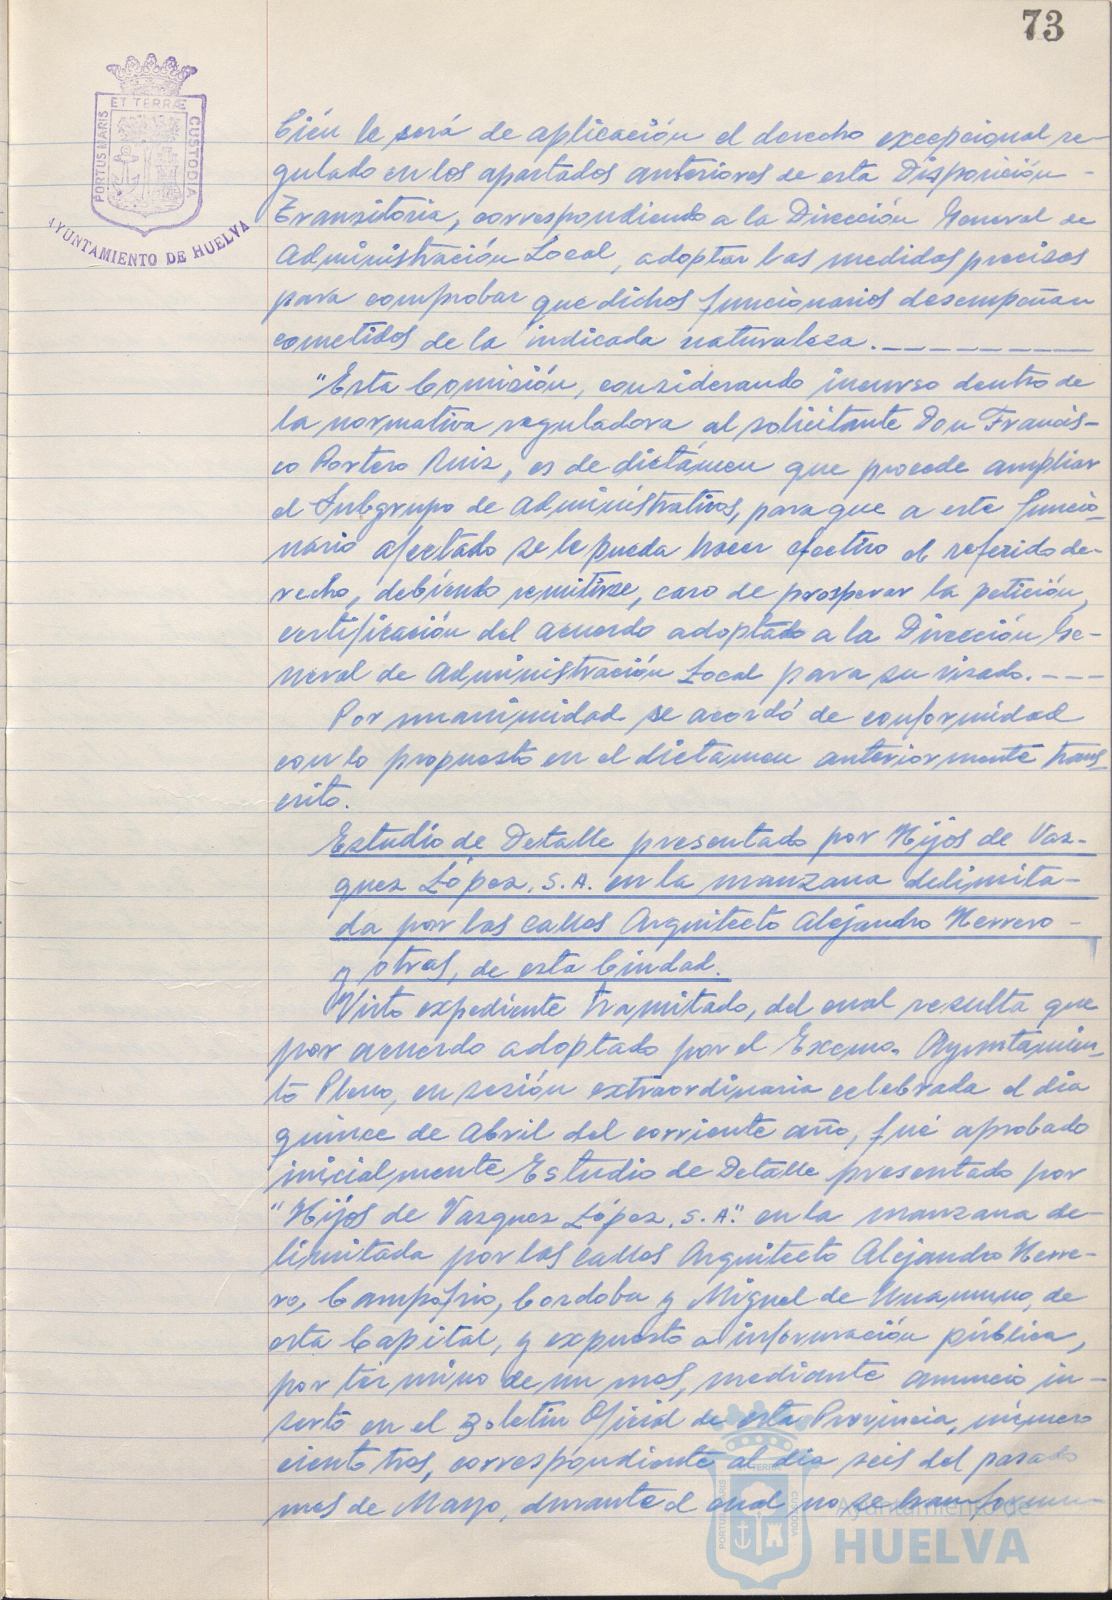 73
ET TERRÆ
PORTUS MARIS
CUSTODIA
AYUNTAMIENTO DE HUELVA
bién le será de aplicación el derecho excepcional re-
gulado en los apartados anteriores de esta Disposición -
Transitoria, correspondiendo a la Dirección General de
Administración Local, adoptar las medidas precisas
para comprobar que dichos funcionarios desempeñan
cometidos de la indicada naturaleza. ---------
"Esta Comisión, considerando incurso dentro de
la normativa reguladora al solicitante Don Francis-
co Portero Ruiz, es de dictámen que procede ampliar
el Subgrupo de Administrativos, para que a este funcio-
nario afectado se le pueda hacer efectivo el referido de-
recho, debiendo remitirse, caso de prosperar la petición,
certificación del acuerdo adoptado a la Dirección Ge-
neral de Administración Local para su visado. ---
Por unanimidad se acordó de conformidad
con lo propuesto en el dictamen anteriormente trans-
crito.
Estudio de Detalle presentado por Hijos de Vaz-
quez López, S.A. en la manzana delimita-
da por las calles Arquitecto Alejandro Herrero -
y otras, de esta Ciudad.
Visto expediente tramitado, del cual resulta que
por acuerdo adoptado por el Excmo. Ayuntamien-
to Pleno, en sesión extraordinaria celebrada el dia
quince de Abril del corriente año, fué aprobado
inicialmente Estudio de Detalle presentado por
"Hijos de Vazquez López, S.A." en la manzana de-
limitada por las calles Arquitecto Alejandro Herre-
ro, Campofrio, Cordoba y Miguel de Unamuno, de
esta Capital, y expuesto a información pública,
por término de un mes, mediante anuncio in-
serto en el Boletin Oficial de esta Provincia, número
ciento tres, correspondiente al dia seis del pasado
mes de Mayo, durante el cual no se han formu-
PORTUS MARIS
TERRÆ
CUSTODIA
Ayuntamiento de
HUELVA